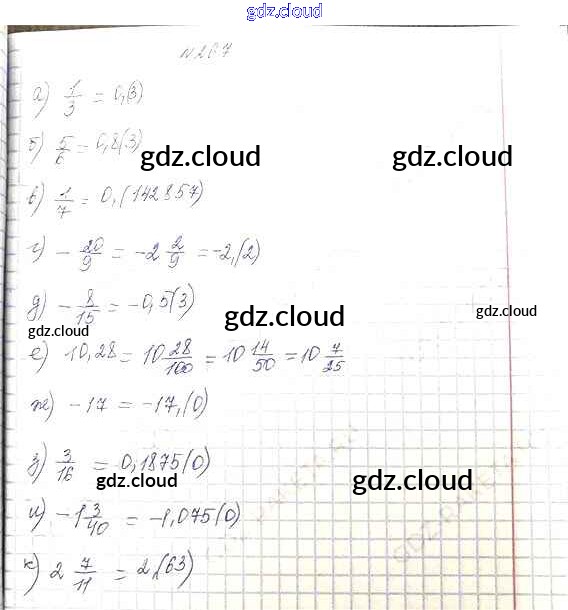 gdz.cloud
N 267
а) 1/3 = 0,(3)
б) 5/6 = 0,8(3)
gdz.cloud gdz.cloud
в) 1/7 = 0,(142857)
г) - 20/9 = -2 2/9 = -2,(2)
д) - 8/15 = -0,5(3)
gdz.cloud gdz.cloud gdz.cloud
е) 10,28 = 10 28/100 = 10 14/50 = 10 7/25
ж) -17 = -17,(0)
з) 3/16 = 0,1875(0)
gdz.cloud gdz.cloud
и) -1 3/40 = -1,075(0)
к) 2 7/11 = 2,(63)
gdz.cloud gdz.cloud